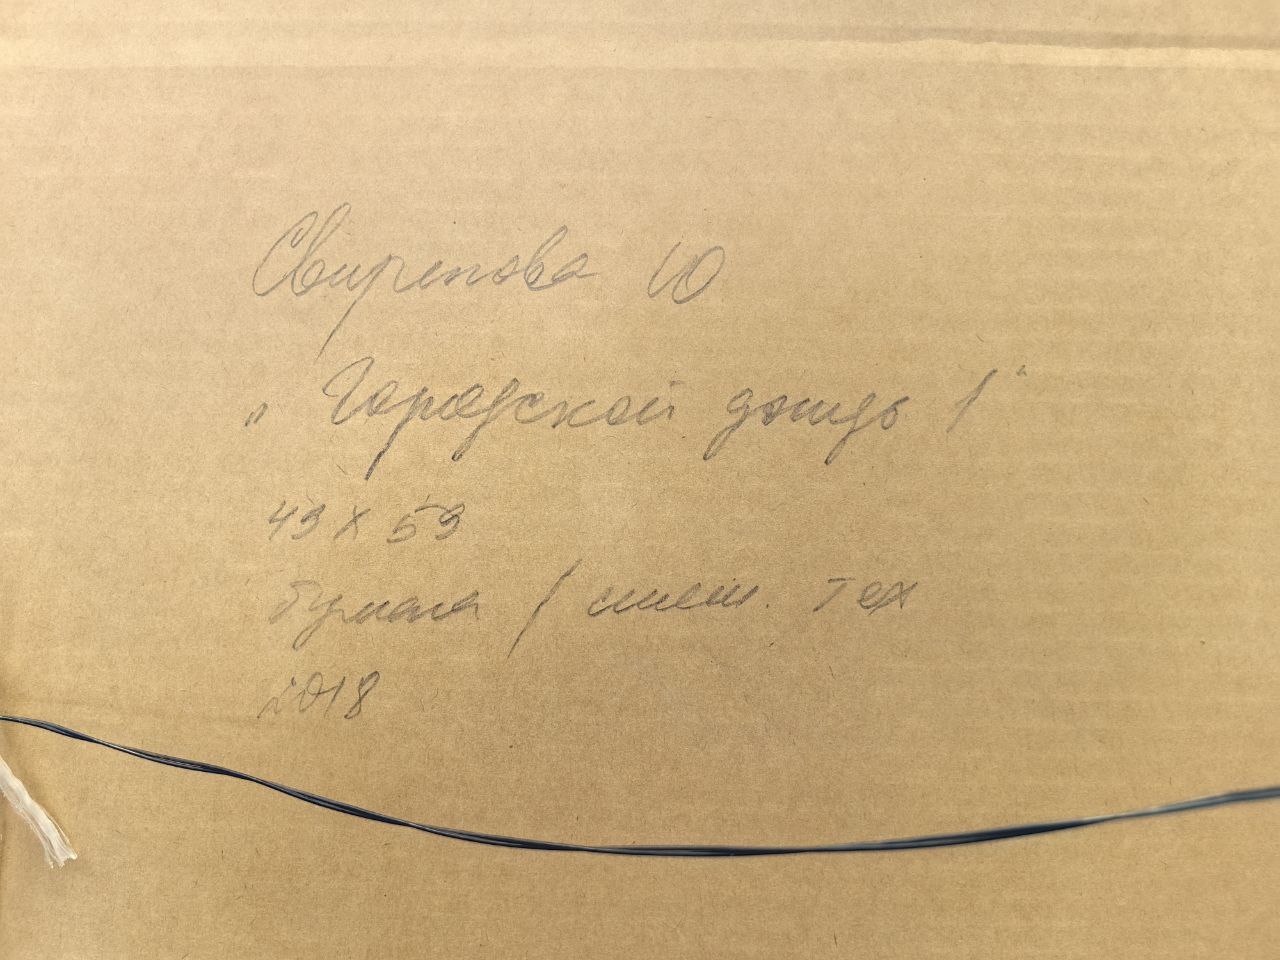 Свирепова Ю
„Городской дождь 1“
49 х 59
бумага / смеш. тех
2018